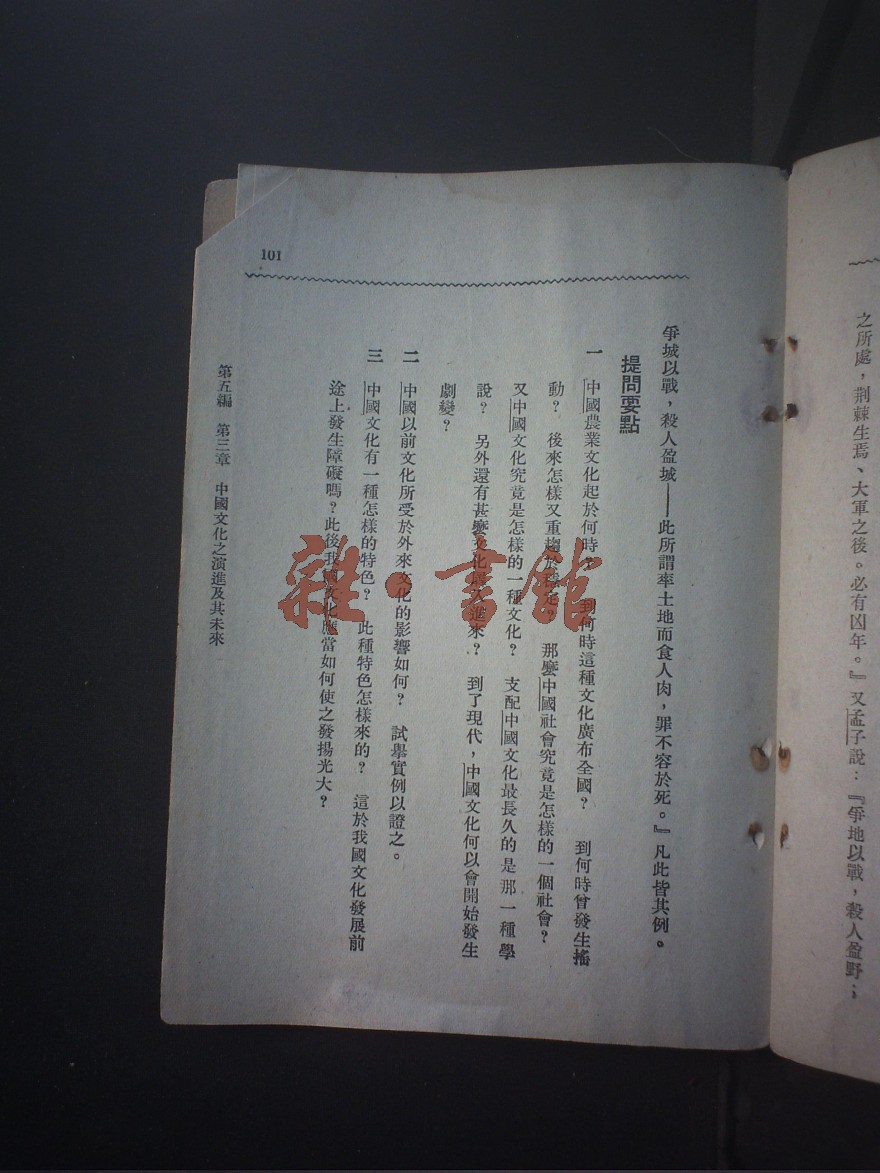 之所處，荆棘生焉、大軍之後。必有凶年。』又孟子說：『爭地以戰，殺人盈野；
爭城以戰，殺人盈城——此所謂率土地而食人肉，罪不容於死。』凡此皆其例。
提問要點
一　中國農業文化起於何時？　到何時這種文化廣布全國？　到何時曾發生搖
動？　後來怎樣又重趨於穩定？　那麼中國社會究竟是怎樣的一個社會？
又中國文化究竟是怎樣的一種文化？　支配中國文化最長久的是那一種學
說？　另外還有甚麼文化　入進來？　到了現代，中國文化何以會開始發生
劇變？
二　中國以前文化所受於外來文化的影響如何？　試舉實例以證之。
三　中國文化有一種怎樣的特色？　此種特色怎樣來的？　這於我國文化發展前
途上發生障礙嗎？此後我國文化應當如何使之發揚光大？
第五編　第三章　中國文化之演進及其未來
101
雜·書館